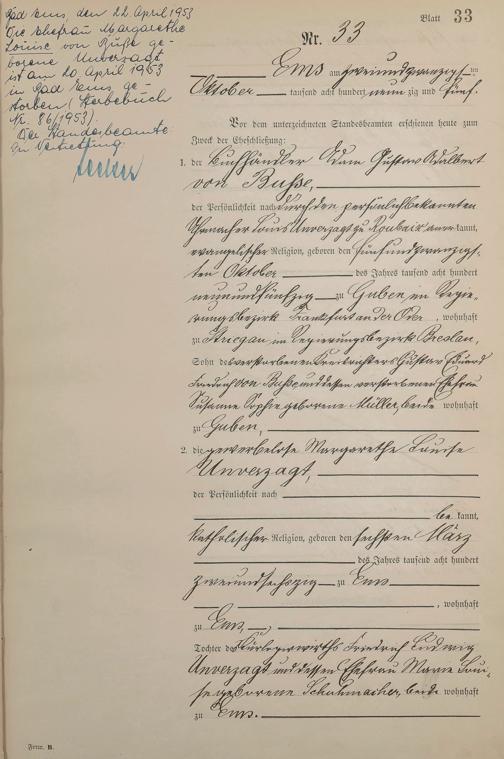 Bad Ems, den 22. April 1953
Die Ehefrau Margarethe
Louise von Buße ge-
borene Unverzagt
ist am 20. April 1953
in Bad Ems ge-
storben (Sterbebuch
Nr. 86/1953).
Der Standesbeamte
In Vertretung
Becker
Blatt 33
Nr. 33
Ems am zweiundzwanzigsten
Oktober tausend acht hundert neunzig und fünf.
Vor dem unterzeichneten Standesbeamten erschienen heute zum
Zweck der Eheschließung:
1. der Buchhändler Gustav Adalbert
von Buße,
der Persönlichkeit nach durch den persönlich bekannten
Louis Unverzagt zu anerkannt,
evangelischer Religion, geboren den fünfundzwanzig-
sten Oktober des Jahres tausend acht hundert
neunundfünfzig zu Guben, im Regie-
rungsbezirk Frankfurt an der Oder, wohnhaft
zu Striegau, im Regierungsbezirk Breslau,
Sohn des verstorbenen Gustav Eduard
Friedrich von Buße und dessen verstorbenen Ehefrau
Susanne Sophie geborene Müller, beide wohnhaft
zu Guben,
2. die gewerbelose Margarethe Louise
Unverzagt,
der Persönlichkeit nach
be kannt,
katholischer Religion, geboren den sechsten März
des Jahres tausend acht hundert
zweiundsechszig zu Ems
, wohnhaft
zu Ems,
Tochter des Friedrich Ludwig
Unverzagt und dessen Ehefrau Marie Loui-
se geborene Schuhmacher, beide wohnhaft
zu Ems.
Form. B.